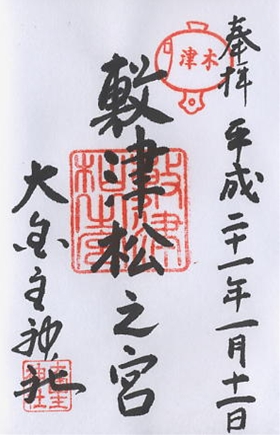 奉拝
平成二十一年一月十一日
木津
敷津松之宮
大国主神社